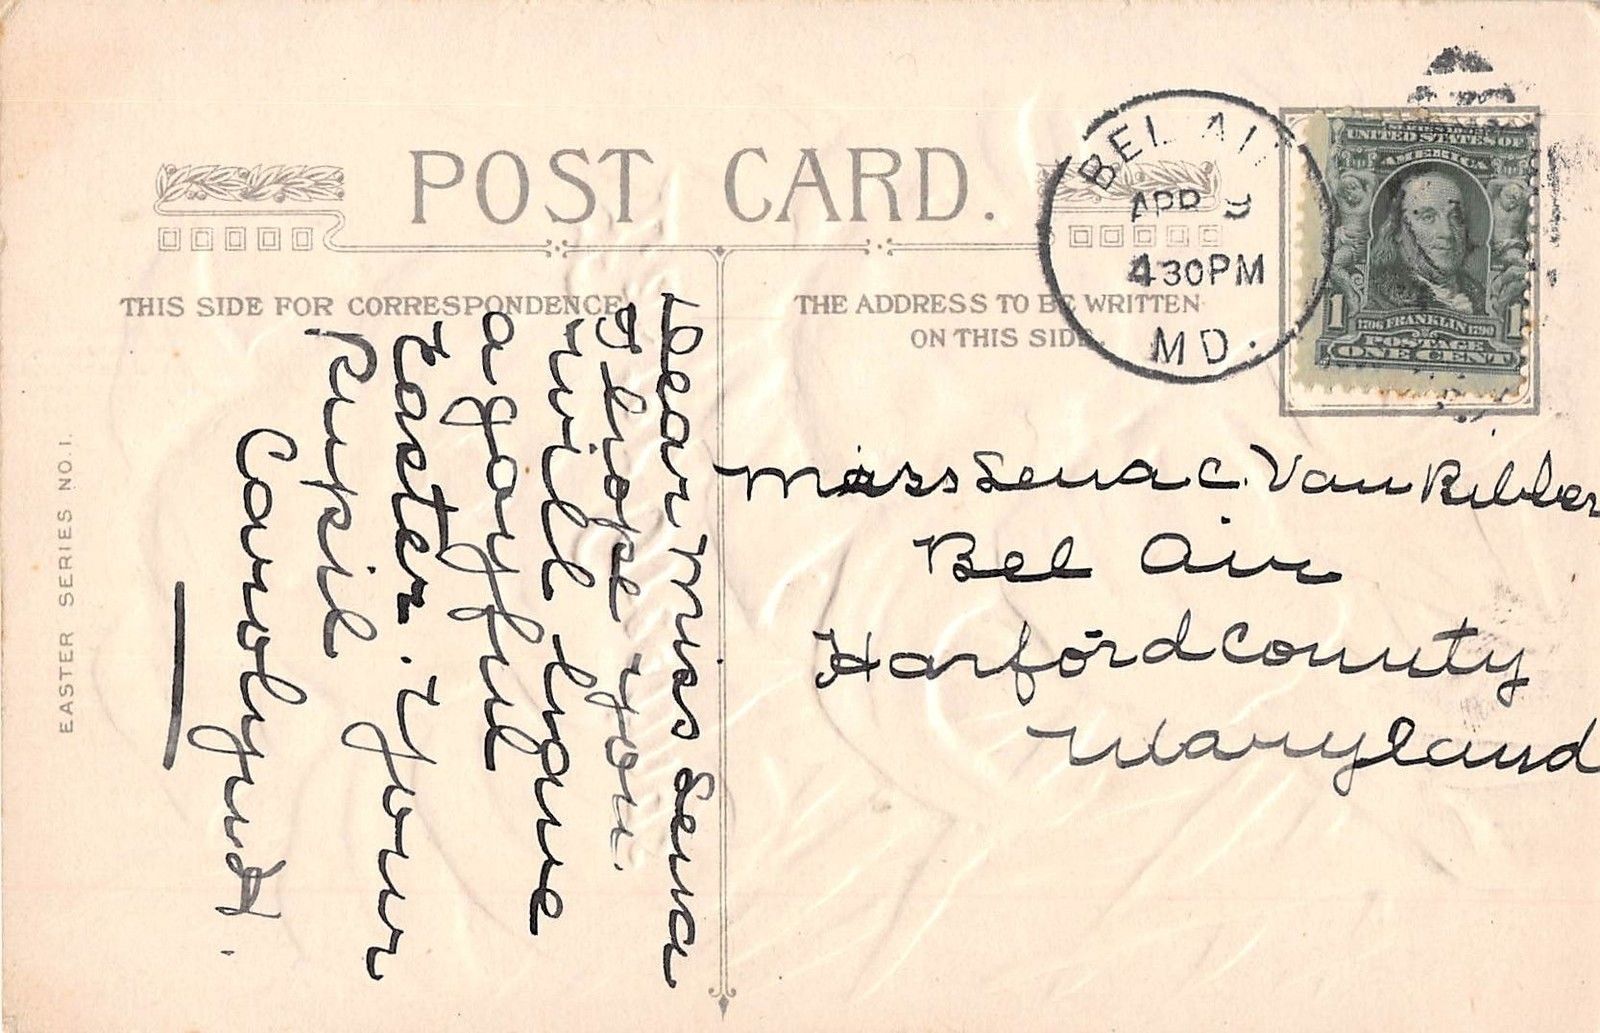 POST CARD.
THIS SIDE FOR CORRESPONDENCE
THE ADDRESS TO BE WRITTEN
ON THIS SIDE.
BEL AIR
APR 9
430PM
MD.
UNITED STATES OF
AMERICA
1706 FRANKLIN 1790
1 1
POSTAGE
ONE CENT
Dear Miss Lena
I hope you
will have
a joyful
Easter. Your
Pupil
Carolyn H.
Miss Lena C. Van Bibber
Bel Air
Harford County
Maryland
EASTER SERIES NO. 1.